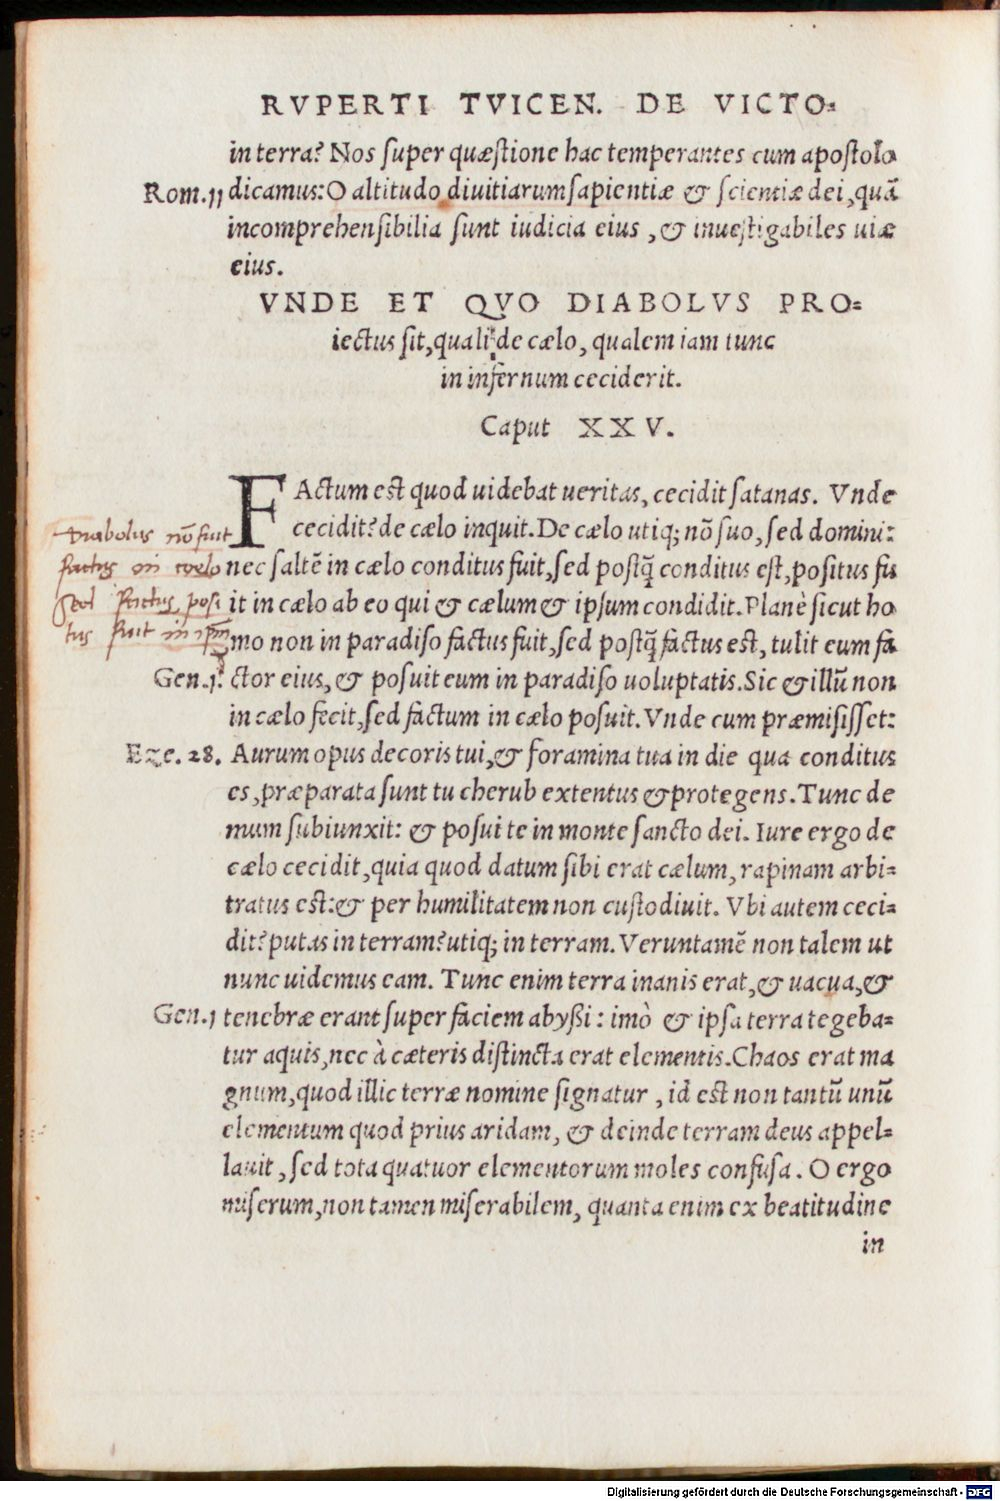 RVPERTI TVICEN. DE VICTO⸗
in terra? Nos super quæstione hac temperantes cum apostolo
Rom.11 dicamus: O altitudo diuitiarum sapientiæ & scientiæ dei, quā
incomprehensibilia sunt iudicia eius, & inuestigabiles uiæ
eius.
VNDE ET QVO DIABOLVS PRO⸗
iectus sit, quali de cælo, qualem iam tunc
in infernum ceciderit.
Caput XXV.
FActum est quod uidebat ueritas, cecidit satanas. Vnde
cecidit? de cælo inquit. De cælo utiq; nō suo, sed domini:
Diabolus nō fuit
nec saltē in cælo conditus fuit, sed postq̃ conditus est, positus fu
factus in coelo
it in cælo ab eo qui & cælum & ipsum condidit. Planè sicut ho
Sed factus, posi
mo non in paradiso factus fuit, sed postq̃ factus est, tulit eum fa
tus fuit in ipm̄
Gen.1. ctor eius, & posuit eum in paradiso uoluptatis. Sic & illū non
in cælo fecit, sed factum in cælo posuit. Vnde cum præmisisset:
Eze. 28. Aurum opus decoris tui, & foramina tua in die qua conditus
es, præparata sunt tu cherub extentus & protegens. Tunc de
mum subiunxit: & posui te in monte sancto dei. Iure ergo de
cælo cecidit, quia quod datum sibi erat cælum, rapinam arbi⸗
tratus est: & per humilitatem non custodiuit. Vbi autem ceci⸗
dit? putas in terram? utiq; in terram. Veruntamē non talem ut
nunc uidemus eam. Tunc enim terra inanis erat, & uacua, &
Gen.1 tenebræ erant super faciem abyßi: imò & ipsa terra tegeba⸗
tur aquis, nec à cæteris distincta erat elementis. Chaos erat ma
gnum, quod illic terræ nomine signatur, id est non tantū unū
elementum quod prius aridam, & deinde terram deus appel⸗
lauit, sed tota quatuor elementorum moles confusa. O ergo
miserum, non tamen miserabilem, quanta enim ex beatitudine
in
Digitalisierung gefördert durch die Deutsche Forschungsgemeinschaft - DFG